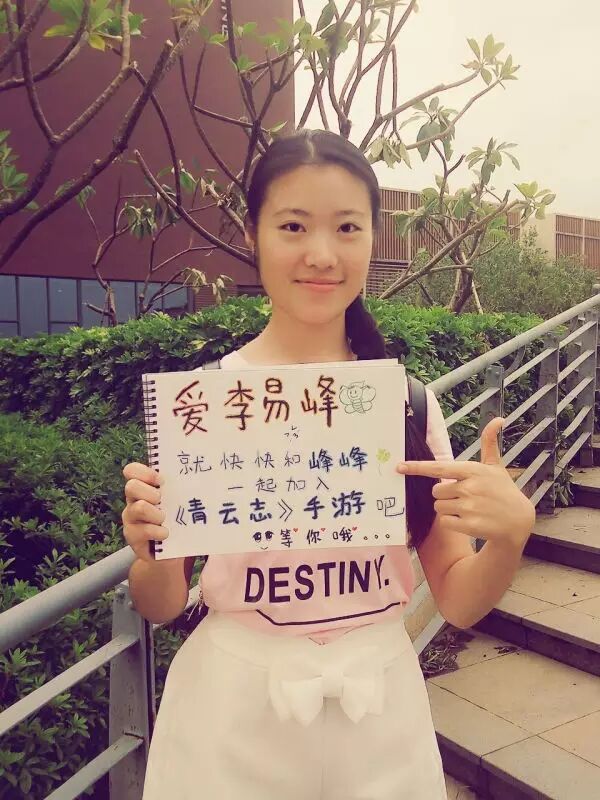 爱李易峰
就快快和峰峰
一起加入
《青云志》手游吧
等你哦...
DESTINY.